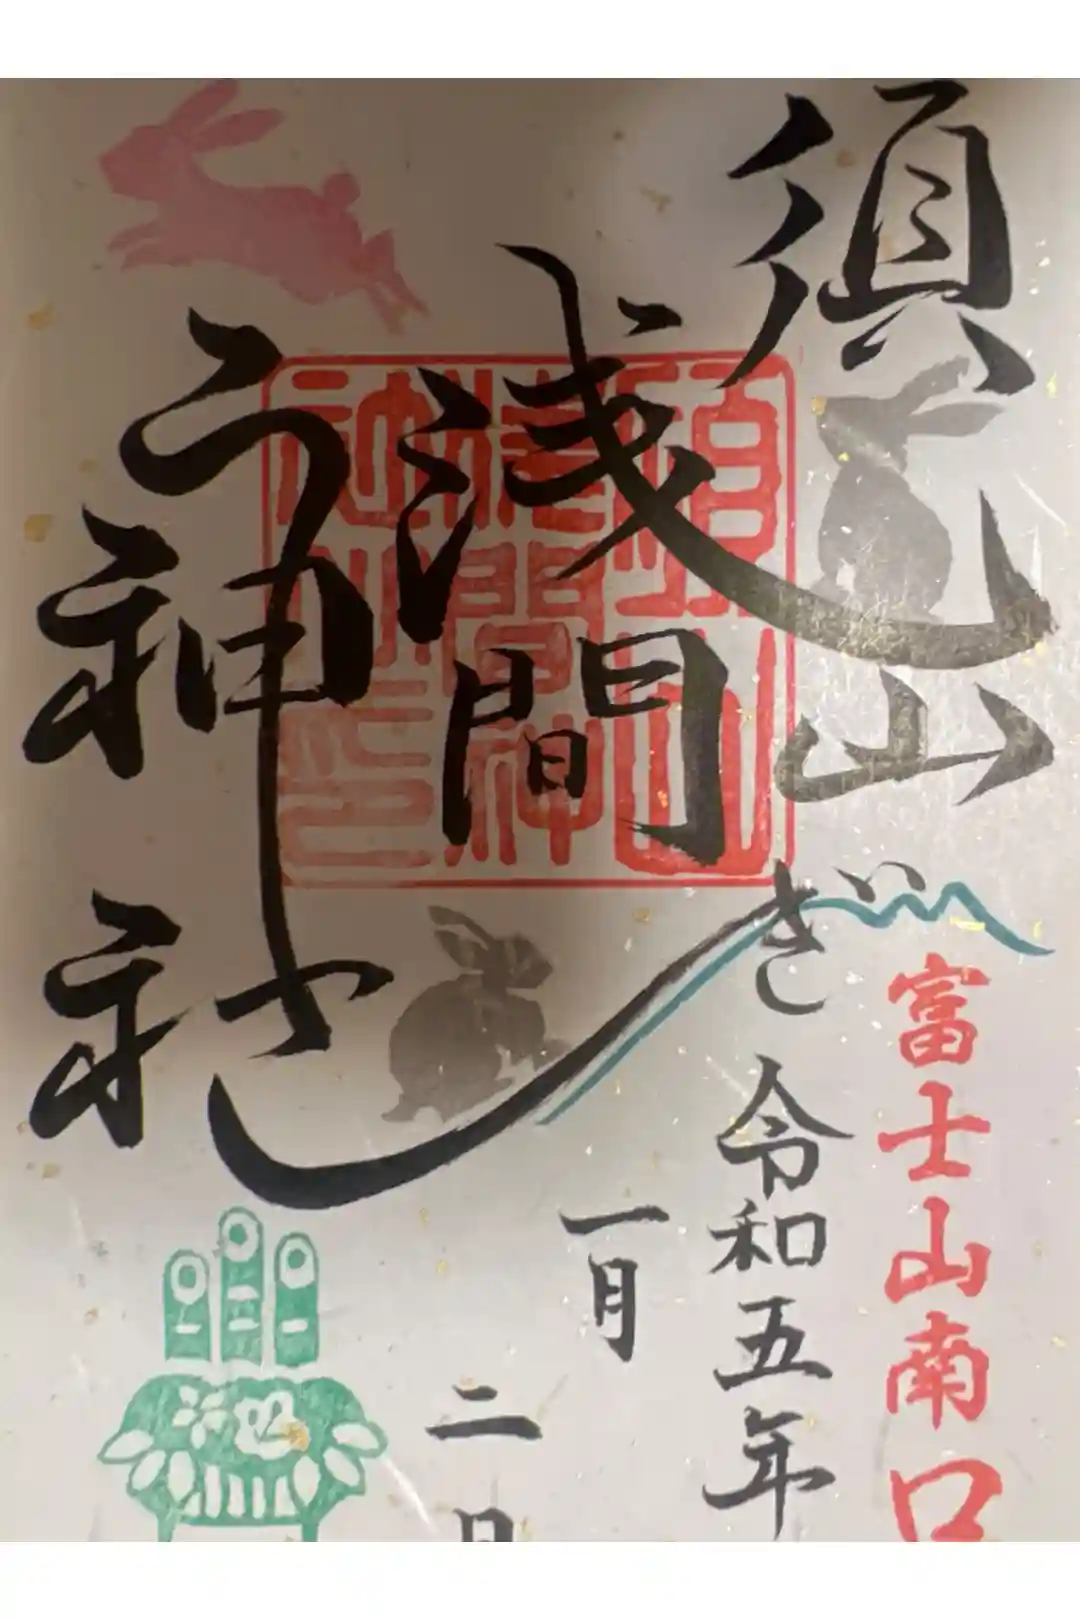 須山
浅間
神社
富士山南口
令和五年
一月
二日